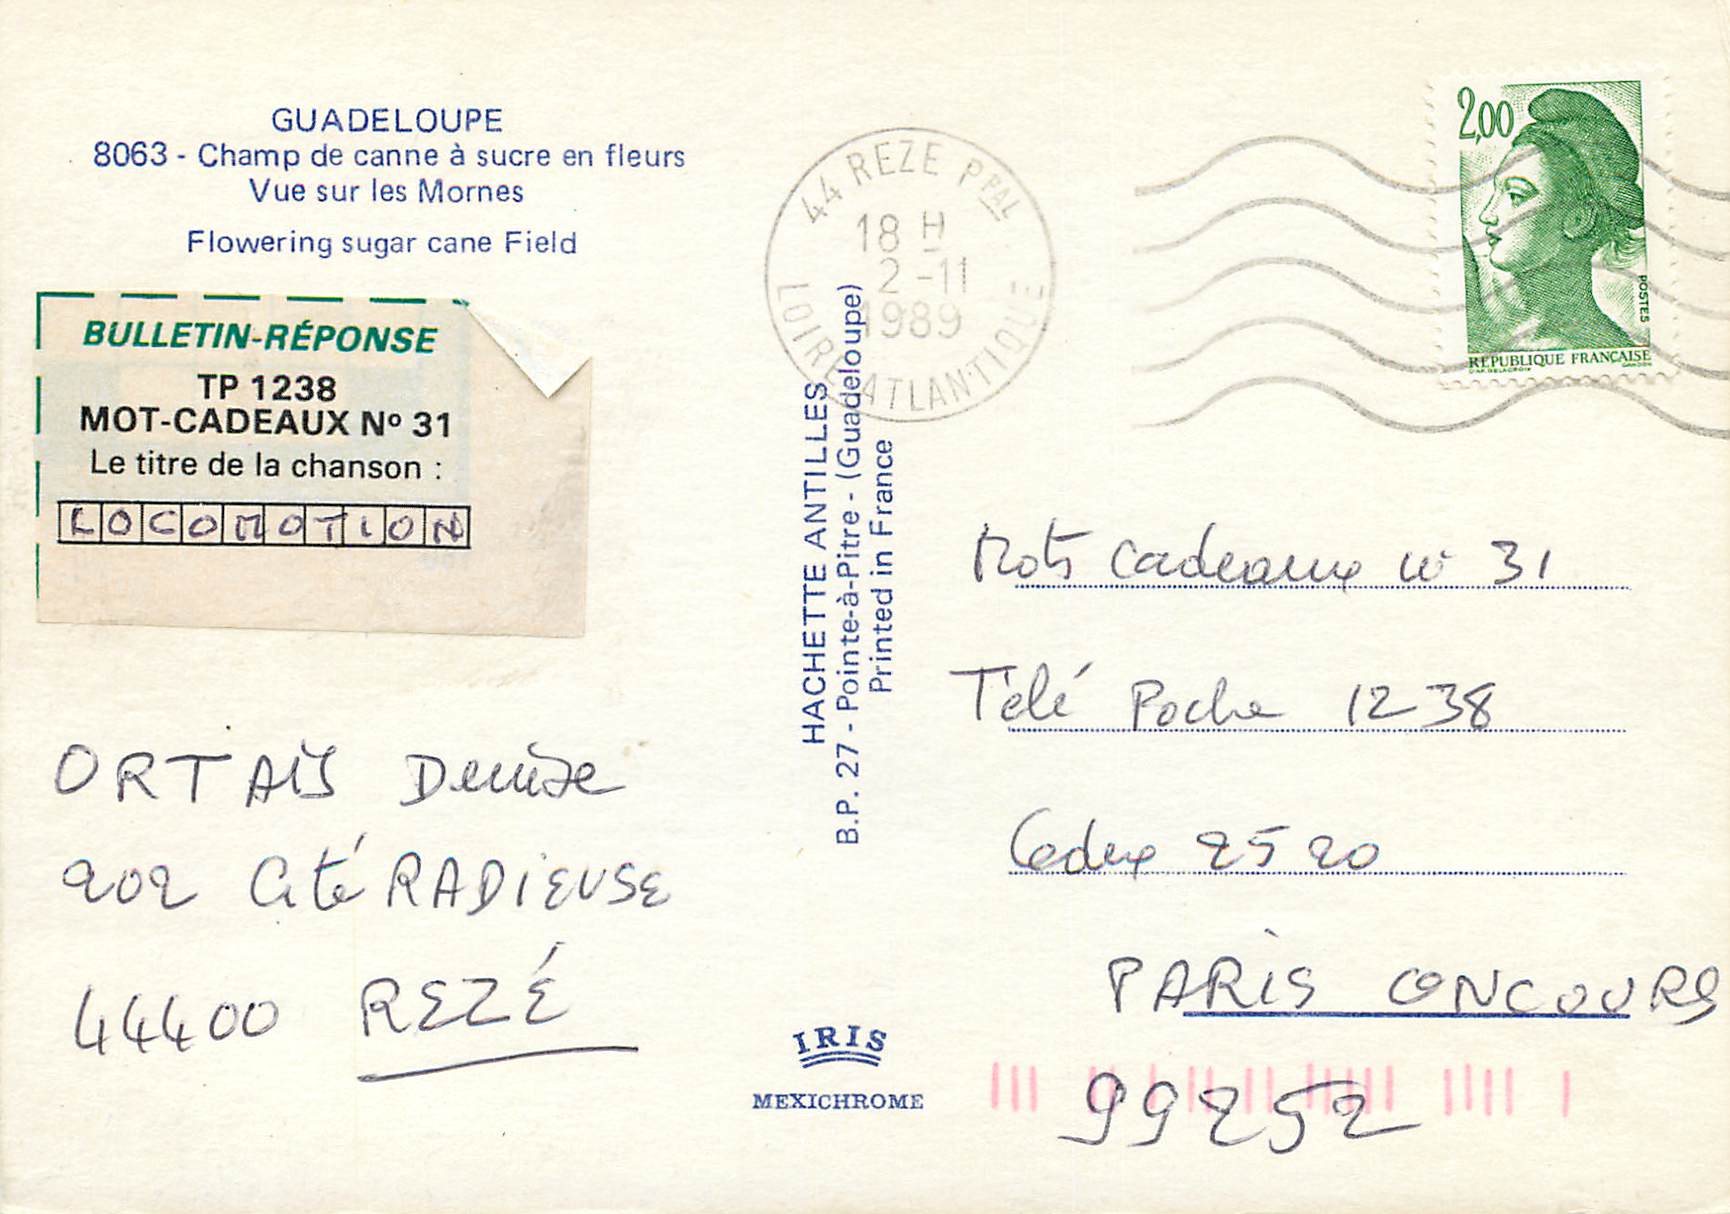 GUADELOUPE
8063 - Champ de canne à sucre en fleurs
Vue sur les Mornes
Flowering sugar cane Field
BULLETIN-RÉPONSE
TP 1238
MOT-CADEAUX Nº 31
Le titre de la chanson :
LOCOMOTION
ORTAIS Denise
202 Cité RADIEUSE
44400 REZÉ
HACHETTE ANTILLES
B.P. 27 - Pointe-à-Pitre - (Guadeloupe)
Printed in France
IRIS
MEXICHROME
44 REZE PPAL
18 H
2 -11
1989
LOIRE-ATLANTIQUE
2,00
POSTES
REPUBLIQUE FRANÇAISE
D'AP. DELACROIX GANDON
Mots Cadeaux nº 31
Télé Poche 1238
Cedex 2520
PARIS CONCOURS
99252